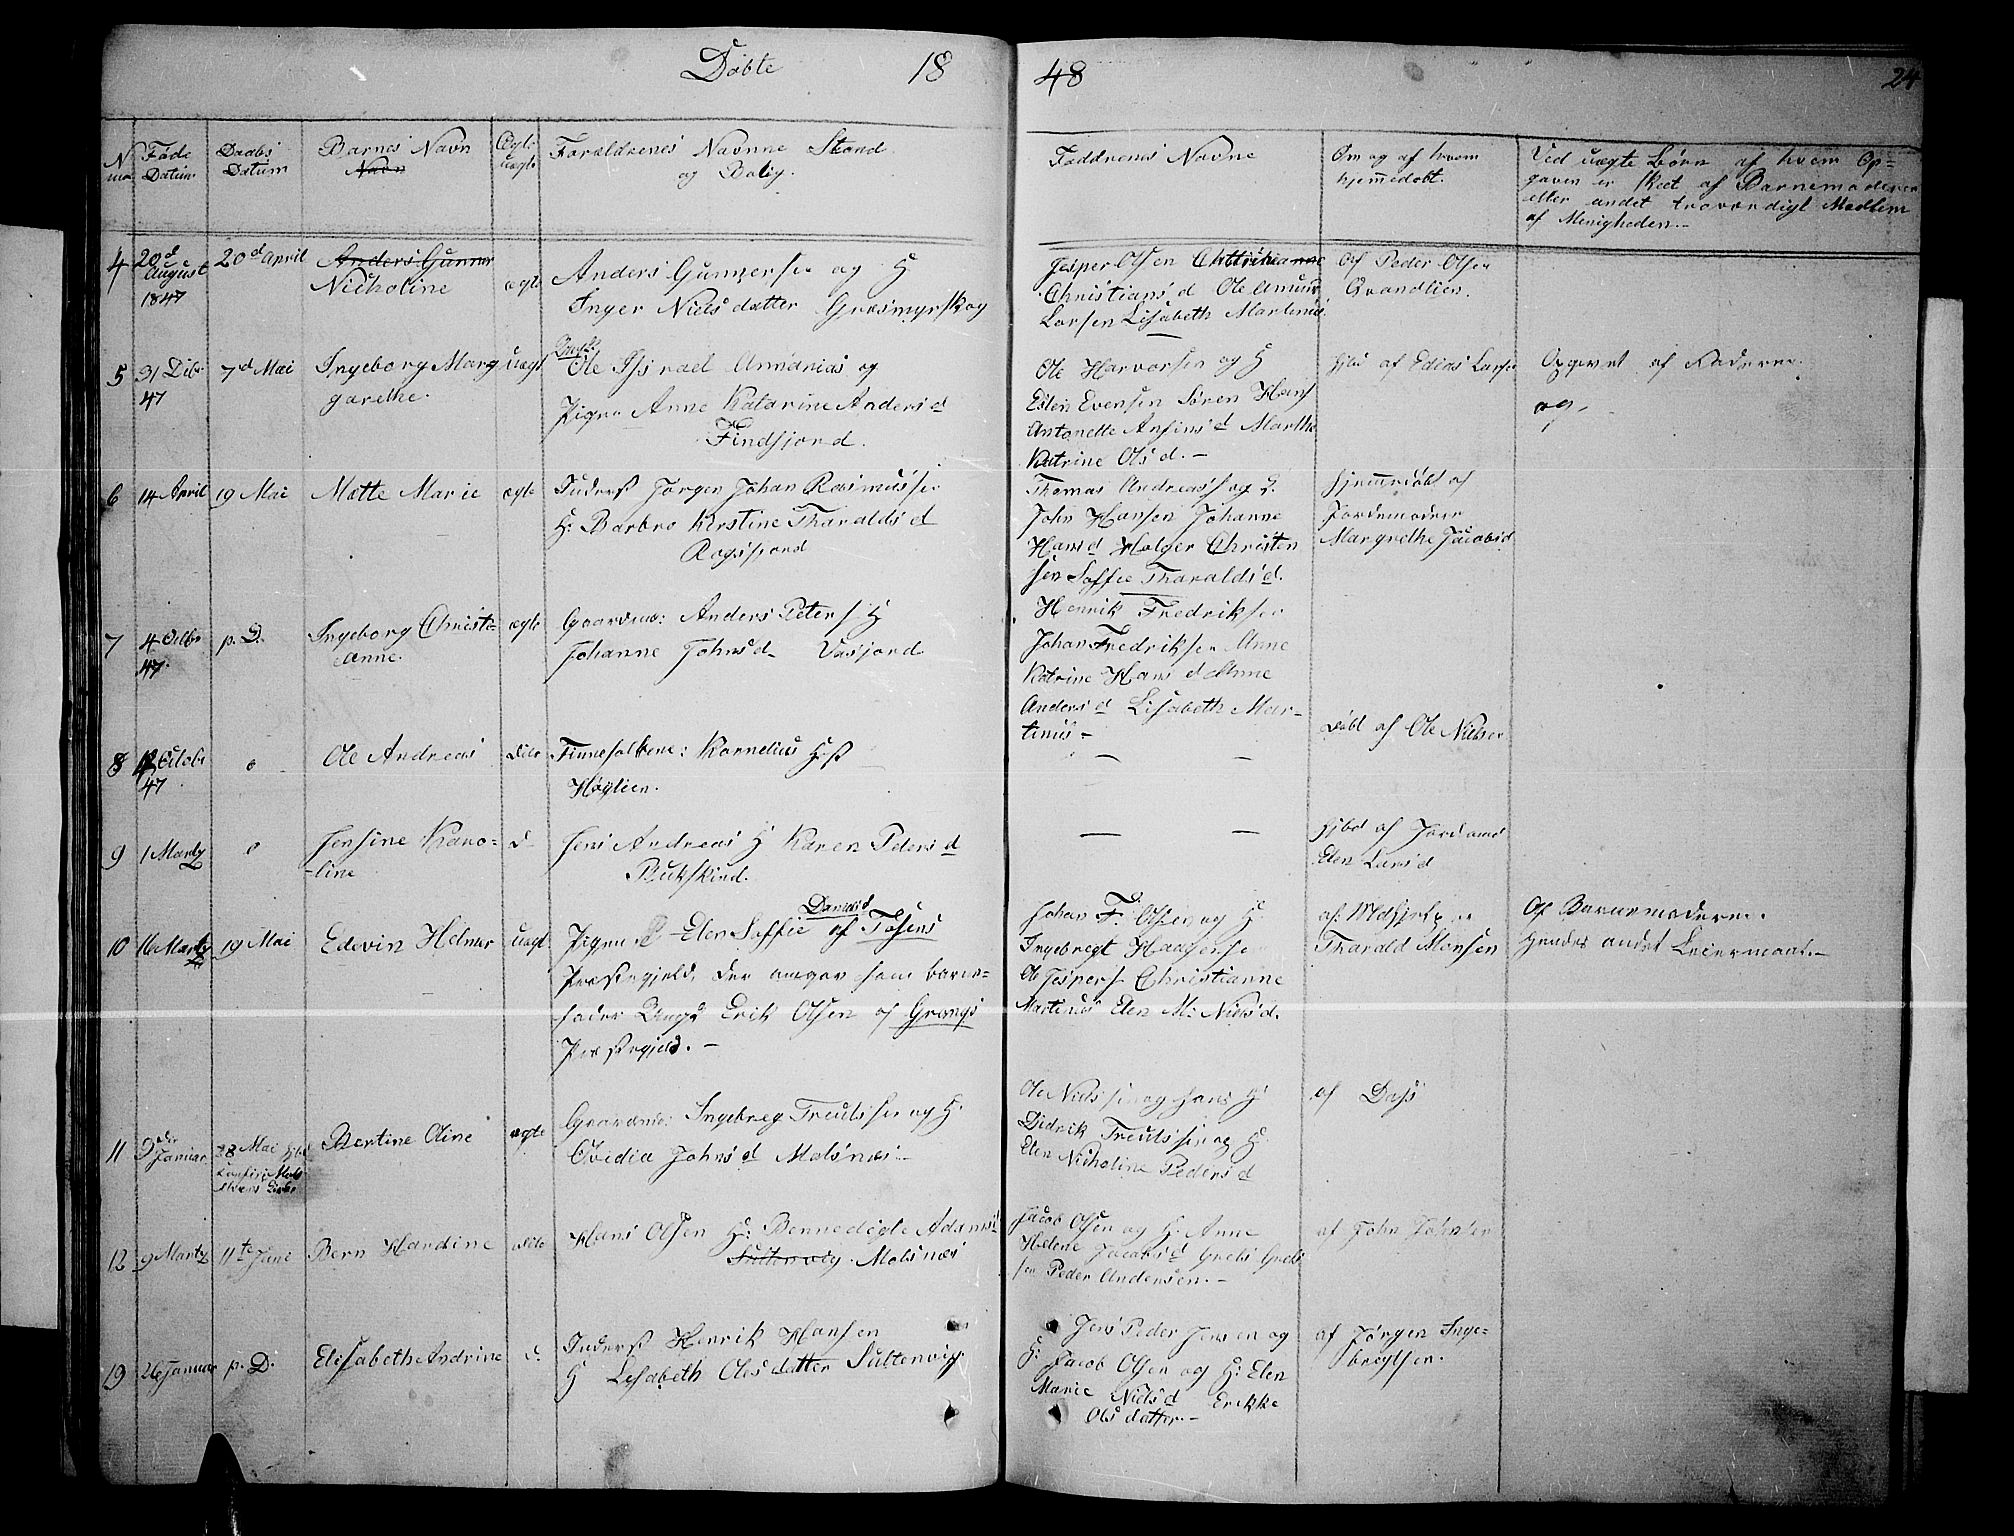 Døbte 18 48 24
N Føde Datum Daabs Datum Barnes Navn Ægte uægte Forældrenes Navnne Stand og Bolig. Faddrenes Navne Om og af hvem hjemmedøbt. Ved uægte Børn af hvem Op-
gaven er skeet af Barnemoderen
eller andet troværdigt Medlem
af Menigheden.-
4 20d August 1847 20d April Anders Gunner
Nicholine ægte Anders Gunnersen og H
Inger Nielsdatter Græsmyrskog
Jesper Olsen
Christians d Ole Amund
Larsen Lisabeth Martinus
Af Peder Olsen
Grandlien.
5 31 Dbr 47 7d Mai Ingeborg Marg
garethe. uægt Ungk. Ole Israel Annanias og
Pigen Anne Katarine Anders d
Findfjord.
Ole Harvorsen og H
Edlin Evensen Søren Hans
Antonette Ansins d Marthe
Katrine Ols d.-
hjd af Edias Larsen
Opgivet af Faderen
og,
6 14 April 19 Mai Mette Marie ægte Inderst Jørgen Johan Rasmussen
H: Barbro Kirstine Tharalds d
Rossfjord
Thomas Andreass og H.
John Hansen Johanne
Hans d Holger Christen
sen Soffie Tharalds d.
hjemmedøbt af
Jordemoder
Margrethe Jacobsd
7 4 Octbr 47. p. D. Ingeborg Christi-
anne. ægte Gaardmd: Anders Peters H
Johanne Johns d- Vasjord
Henrik Fredriksen
Johan Fredriksen Anne
Katrine Hans d Anne
Anders d Lisabeth Mar-
tinus-
8 Octobr 47 Ole Andreas Finnefolkene: Kornelius H
Høglien.
døbt af Ole Nielsen
9 1 Marty Jensine Karo-
-line d- Jens Andreas H Karen Peders d
Bukskind.
hjbd af Jordamd
Elen Lars d
10 16 Marty 19 Mai Edevin Helmer uægt Pigen Elen Soffie Daniels d af Tofens
Præstegjeld, der angav som barne-
fader Ungk Erik Olsen af Grongs
Præstegjeld.-
Johan F. Olsen og H.
Ingebregt Haagensen
Ole Jespers Christianne
Martinus Elen M: Niels d.
af
Tharald Monsen
Af Barnemoderen.
hendes andet Leiermaal.-
11 3die Januar 28 Mai Bertine Oline ægte Gaardmd: Ingebreg Treulssen og H.
Ovidia Johns d Malsnæs.-
Ole Nielssen og hans H
Didrik Treulssen og H.
Elen Nicholine Peders d
af Dass
12 9 Marty 11te Juni Bern Hardine Hans Olsen H: Bennedigte Adams d
Sultenvig Malsnæs
Jacob Olsen og H. Anne
Helene Jacobs d Grels Grels
sen Peder Andersen.-
af John Johnsen
19 26 Januar p. D. Elisabeth Andrine d. Inderst Henrik Hansen
H Lisabeth Olesdatter Sultenvig
Jens Peder Jensen og
H: Jacob Olsen og H: Elen
Marie Niels d Erikke
Olsdatter.-
af Jørgen Inge-
brogtsen.